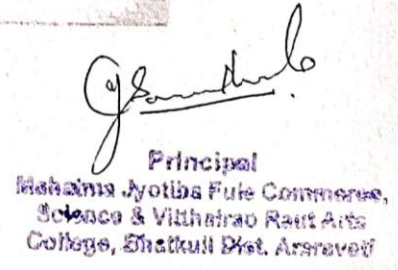 Principal
Mahatma Jyotiba Fule Commerce,
Science & Vitthalrao Raut Arts
College, Bhatkuli Dist. Amravati